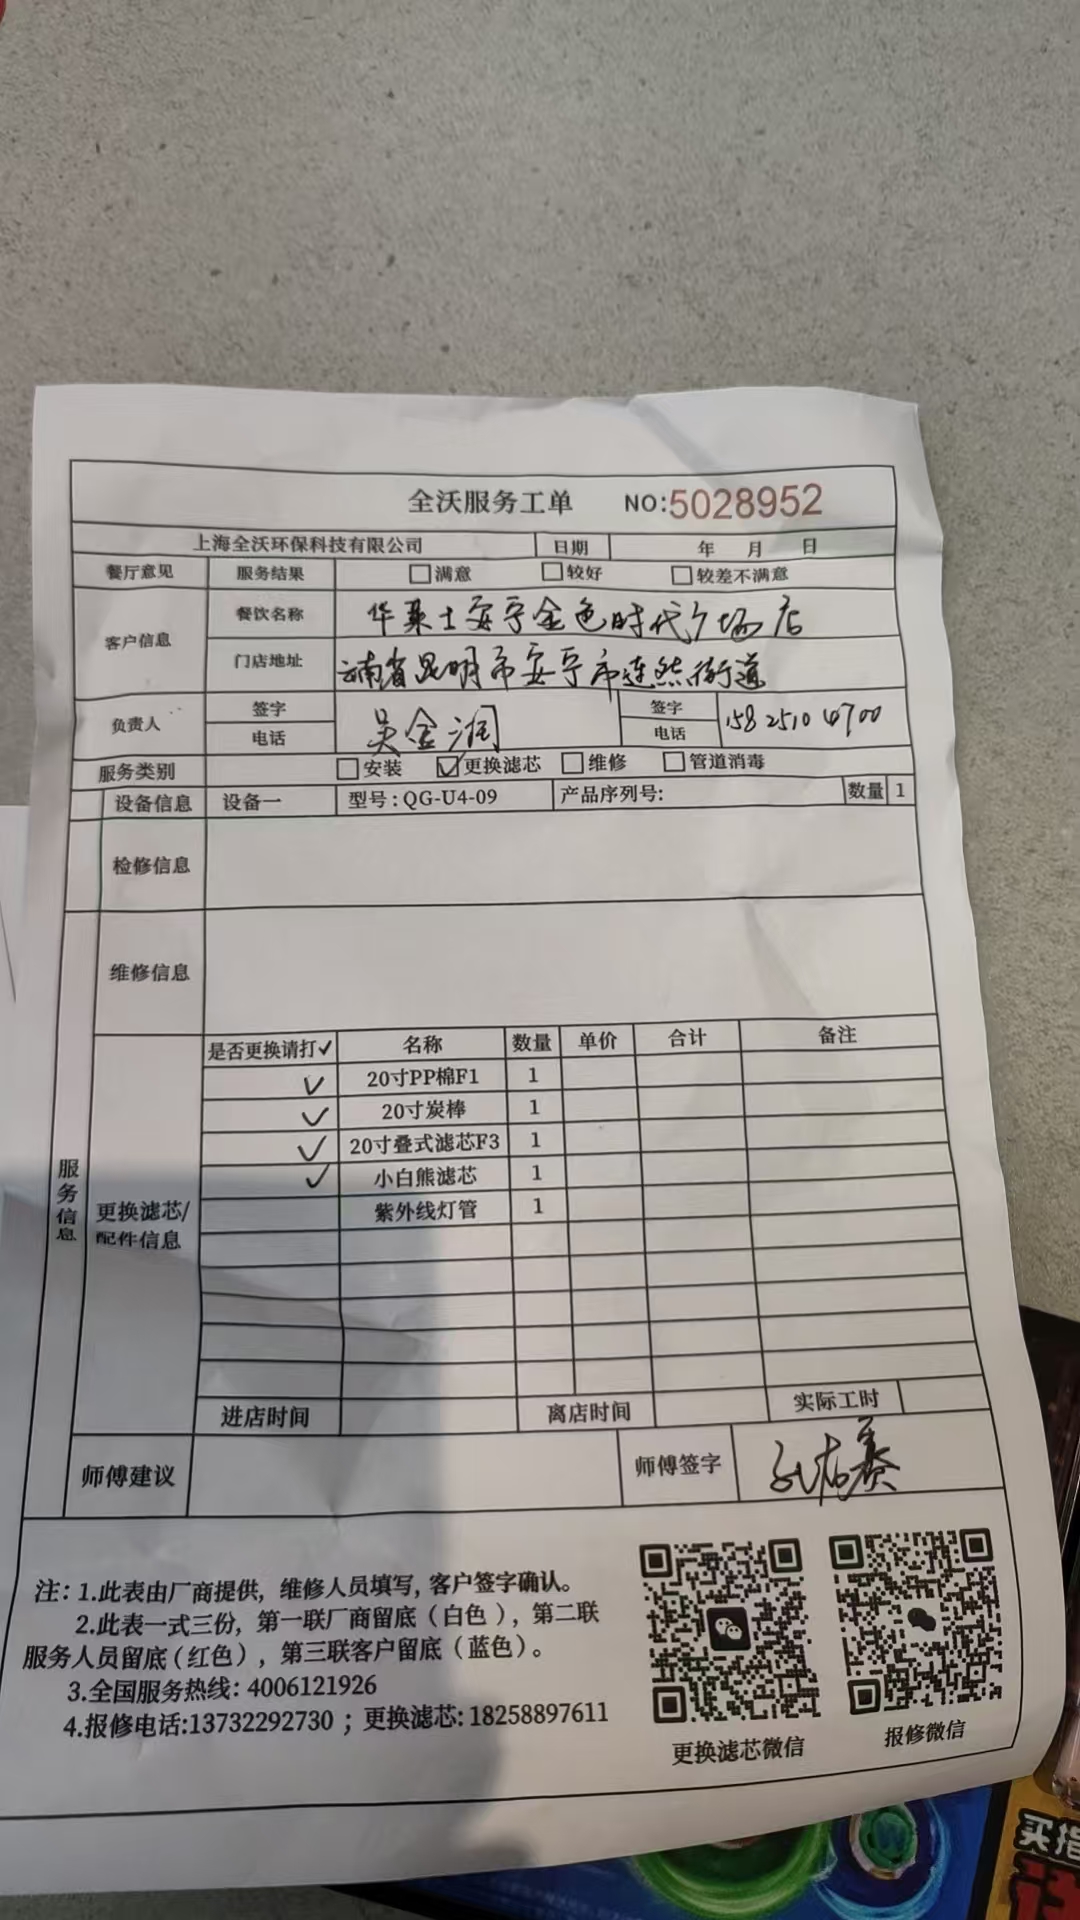 全沃服务工单 NO:5028952
上海全沃环保科技有限公司 日期 年 月 日
餐厅意见 服务结果 □满意 □较好 □较差不满意
客户信息 餐饮名称 华莱士安宁金色时代广场店
门店地址 云南省昆明市安宁市连然街道
负责人 签字 电话 吴金润 签字 电话 15825104700
服务类别 □安装 ☑更换滤芯 □维修 □管道消毒
设备信息 设备一 型号:QG-U4-09 产品序列号: 数量 1
检修信息
维修信息
服务信息
更换滤芯/配件信息
是否更换请打✓ 名称 数量 单价 合计 备注
✓ 20寸PP棉F1 1
✓ 20寸炭棒 1
✓ 20寸叠式滤芯F3 1
✓ 小白熊滤芯 1
紫外线灯管 1
进店时间 离店时间 实际工时
师傅建议 师傅签字
注:1.此表由厂商提供,维修人员填写,客户签字确认。
2.此表一式三份,第一联厂商留底(白色),第二联
服务人员留底(红色),第三联客户留底(蓝色)。
3.全国服务热线:4006121926
4.报修电话:13732292730;更换滤芯:18258897611
更换滤芯微信 报修微信
买指